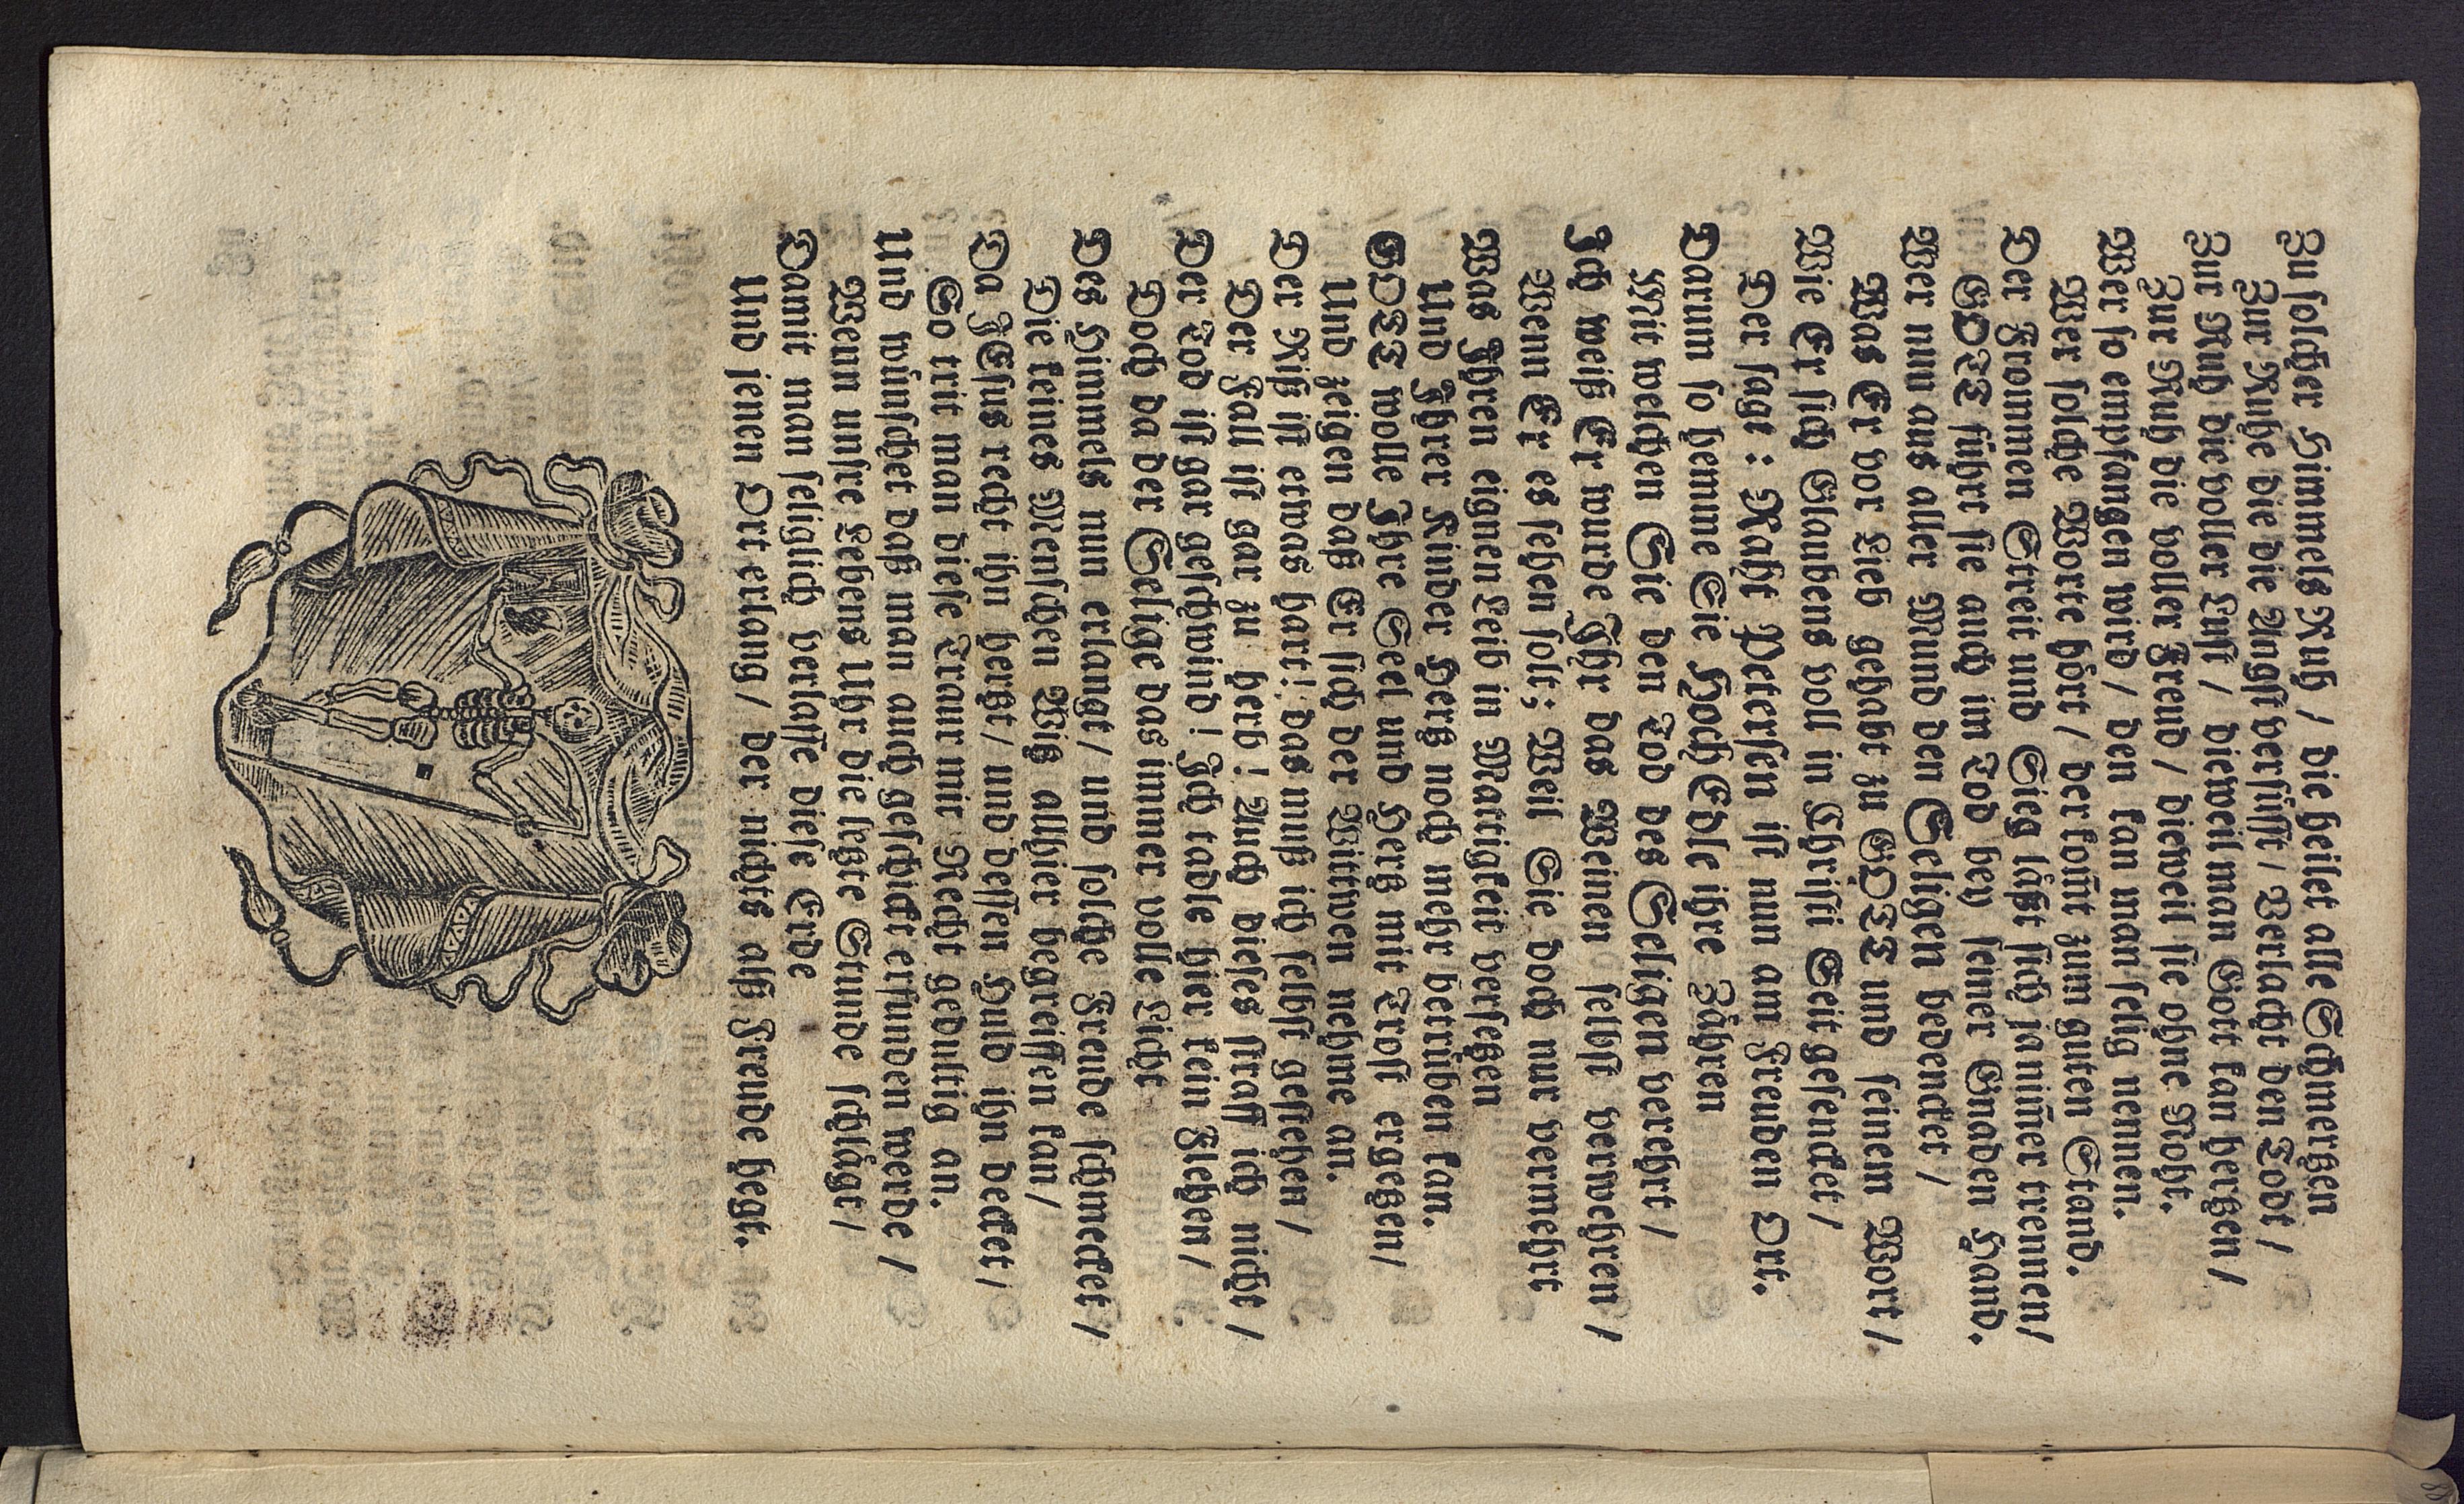 Zu solcher Himmels Ruh / die heilet alle Schmertzen
Zur Ruhe die die Angst versüsst / Verlacht den Todt /
Zur Ruh die voller Lust / dieweil man Gott kan hertzen /
Zur Ruh die voller Freud / dieweil sie ohne Noht.
Wer so empfangen wird / den kan man selig nennen.
Wer solche Worte hört / der kom̃t zum guten Stand.
Der Frommen Streit und Sieg läßt sich ja nim̃er trennen /
GOTT führt sie auch im Tod bey seiner Gnaden Hand.
Wer nun aus aller Mund den Seligen bedencket /
Was Er vor Lieb gehabt zu GOTT und seinem Wort /
Wie Er sich Glaubens voll in Christi Seit gesencket /
Der sagt : Raht Petersen ist nun am Freuden Ort.
Darum so hemme Sie HochEdle ihre Zähren
Mit welchen Sie den Tod des Seligen verehrt /
Ich weiß Er wurde Ihr das Weinen selbst verwehren /
Wenn Er es sehen solt; Weil Sie doch nur vermehrt
Was Ihren eignen Leib in Mattigkeit versetzen
Und Ihrer Kinder Hertz noch mehr betrüben kan.
GOTT wolle Ihre Seel und Hertz mit Trost ergetzen /
Und zeigen daß Er sich der Wittwen nehme an.
Der Riß ist etwas hart ! das muß ich selbst gestehen /
Der Fall ist gar zu herb ! Auch dieses straff ich nicht /
Der Tod ist gar geschwind ! Ich tadle hier kein Flehen /
Doch da der Selige das immer volle Licht
Des Himmels nun erlangt / und solche Freude schmecket /
Die keines Menschen Witz allhier begreiffen kan /
Da JEsus recht ihn hertzt / und dessen Huld ihn decket /
So trit man diese Traur mit Recht gedultig an.
Und wünschet daß man auch geschickt erfunden werde /
Wenn unsre Lebens Uhr die letzte Stunde schlägt /
Damit man seliglich verlasse diese Erde
Und jenen Ort erlang / der nichts alß Freude hegt.